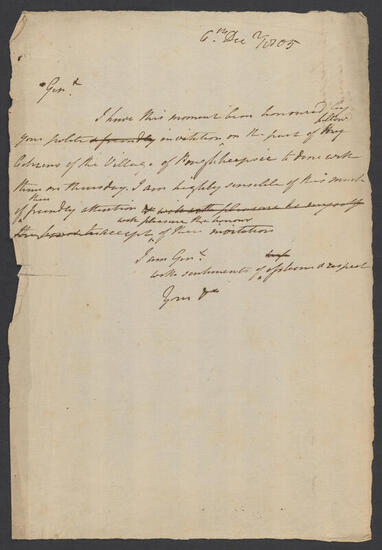 6th Decr 1805
Gent
I have this moment been honoured by
your polite & friendly invitation on the part of my fellow
Citizens of the Village of Poughkeepsie to dine with
them on thursday. I am highly sensible of this mark
of their friendly attention & with pleasure
with pleasure the honour
accept of their invitation
I am Gent
with sentiments of esteem & respect
Your &c